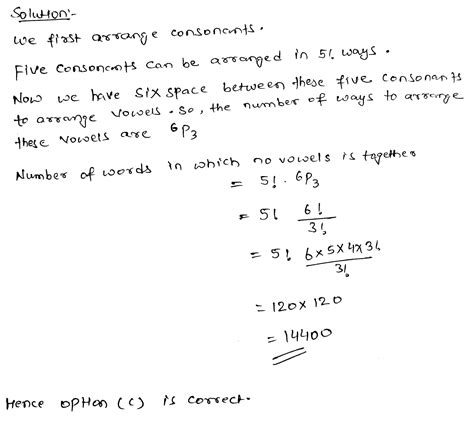 Solution:-
we first arrange consonants.
Five consonants can be arranged in 5! ways.
Now we have six space between these five consonants
to arrange vowels. So, the number of ways to arrange
these vowels are 6P3
Number of words in which no vowels is together
= 5! . 6P3
= 5! 6!/3!
= 5! 6x5x4x3!/3!
= 120 x 120
= 14400
Hence option (c) is correct.